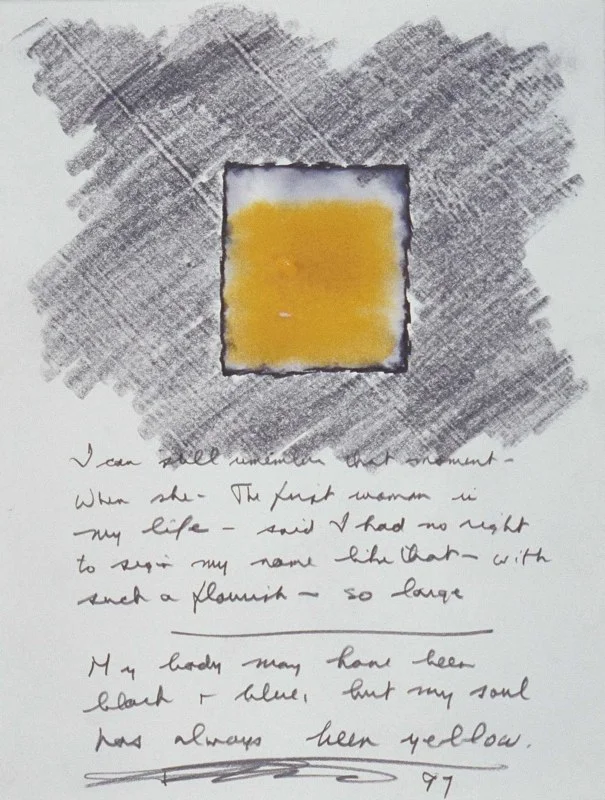 I can still remember that moment -
When she - The first woman in
my life - said I had no right
to sign my name like that - with
such a flourish - so large
My body may have been
black + blue, but my soul
has always been yellow.
97